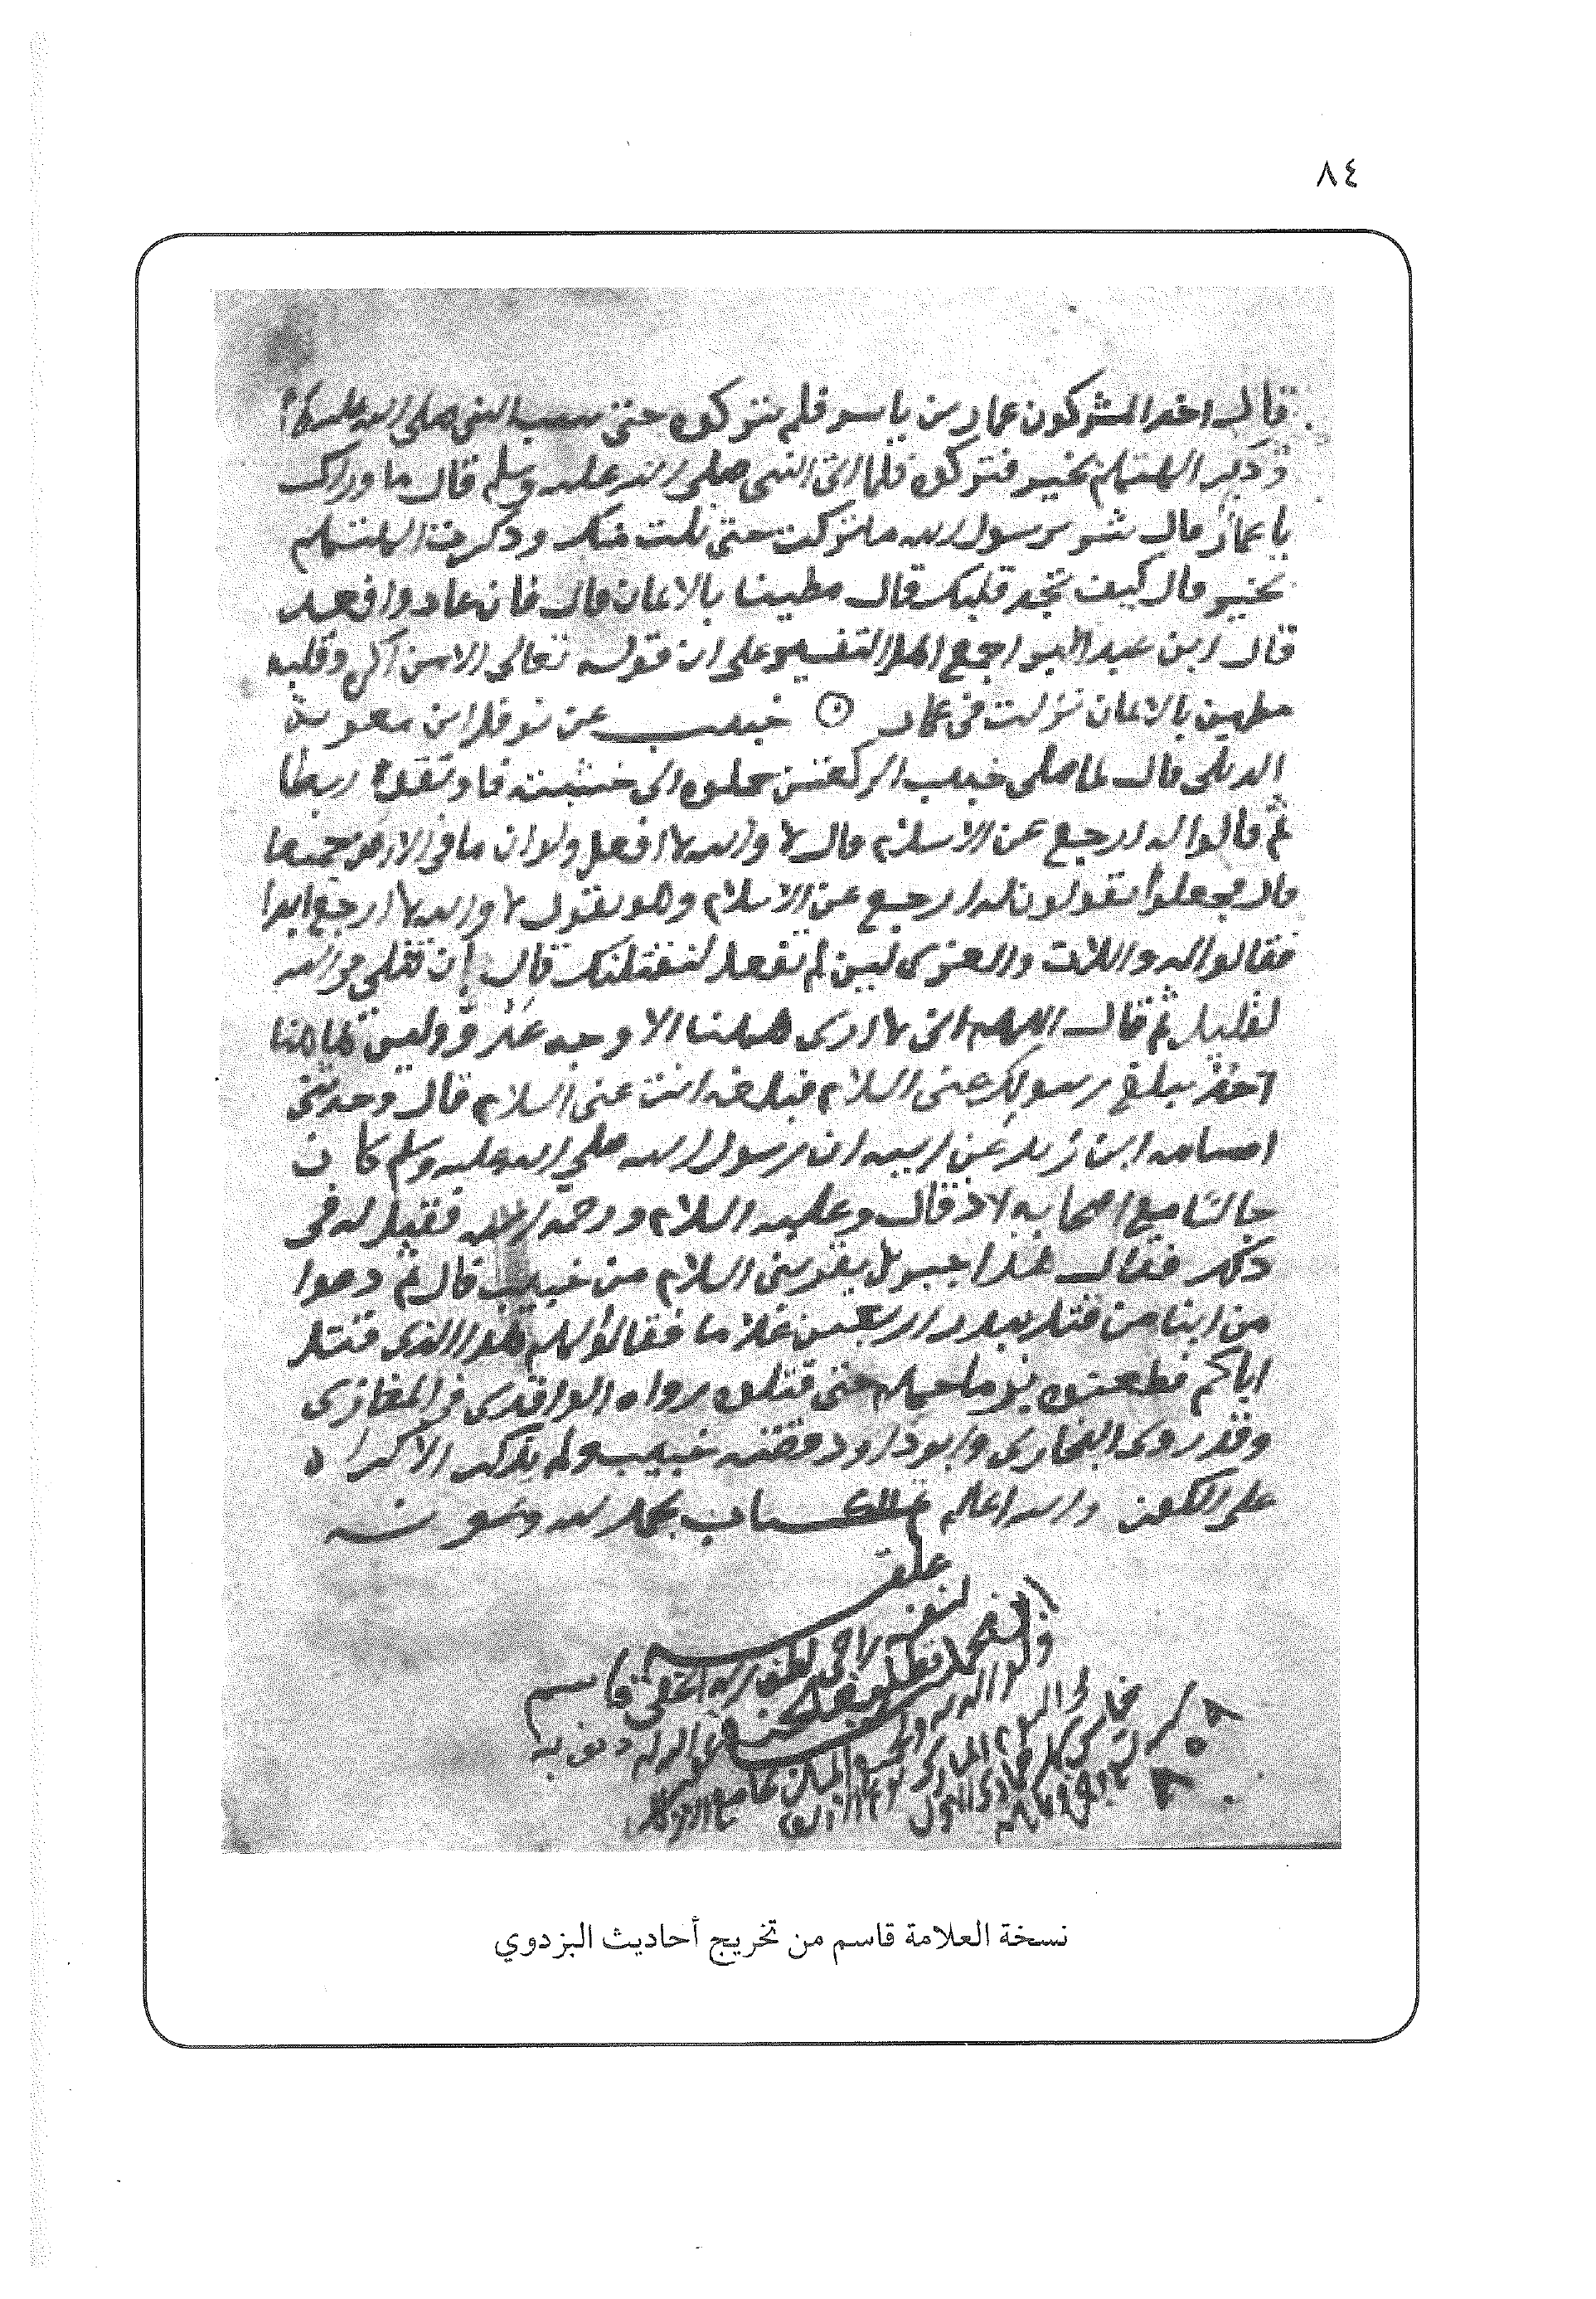 ٨٤
قال اخذ المشركون عمار بن ياسر فلم يتركوه حتى سب النبي صلى الله عليه
وذكر الهتهم بخير فتركوه فلما اتى النبي صلى الله عليه وسلم قال ما وراك
يا عمار قال شر يرسول الله ما تركت حتى نلت منك وذكرت الهتهم
بخير قال كيف تجد قلبك قال مطينا بالايمان قال فان عادوا فعد
قال ابن عبد البر اجمع اهل التفسير على ان قوله تعالى الا من اكره وقلبه
مطمين بالايمان نزلت في عمار خبيب عن نوفل ابن معوية
الديلي قال لما صلى خبيب الركعتين حملوه الى خشبته فاوثقوه رباطا
ثم قالوا له ارجع عن الاسلام قال لا والله لا افعل ولو ان ما في الارض جميعا
قال فجعلوا يقولون له ارجع عن الاسلام وهو يقول لا والله لا ارجع ابدا
فقالوا له واللات والعزى لين لم تفعل لنقتلنك قال ان قتلي في الله
لقليل ثم قال اللهم اني لا ارى ههنا الا وجه عدو وليس هاهنا
احد يبلغ رسولك عني السلام فبلغه انت عني السلام قال وحدثني
اسامه ابن زيد عن ابيه ان رسول الله صلى الله عليه وسلم كان
جالسا مع اصحابه اذ قال وعليه السلام ورحمة الله فقيل له في
ذلك فقال هذا جبريل يقريني السلام من خبيب قال ثم دعوا
من ابنا من قتل ببدر اربعين غلاما فقالوا لهم هذا الذي قتل
اباكم فطعنوه برماحهم حتى قتلوه رواه الواقدي في المغازي
وقد روى البخاري وابو داود قصة خبيب ولم يذكر الاكراه
على الكفر والله اعلم تم الكتاب بحمد الله وعونه
علقه
لنفسه
قاسم
نسخة العلامة قاسم من تخريج أحاديث البزدوي